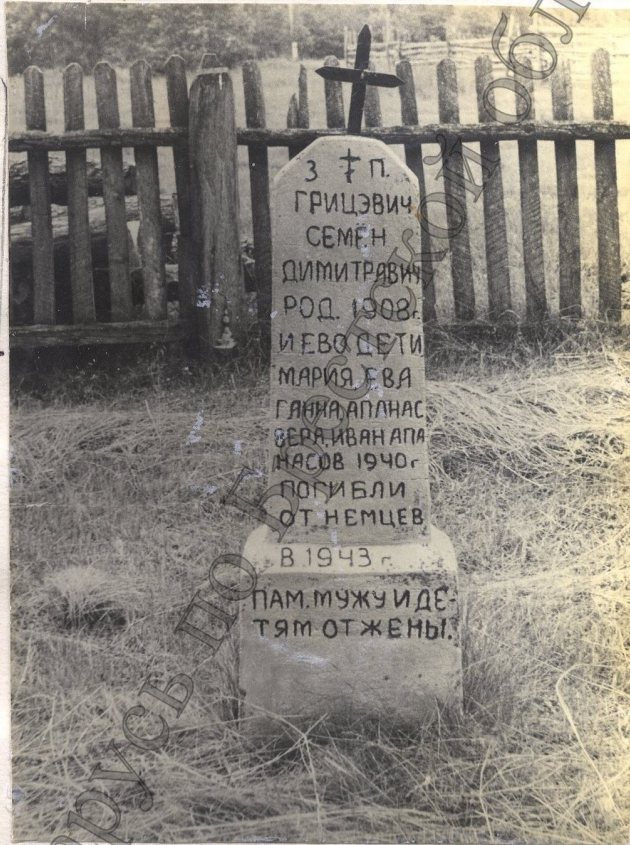 З † П.
ГРИЦЭВИЧ
СЕМЁН
ДИМИТРАВИЧ
РОД. 1908г
И ЕВО ДЕТИ
МАРИЯ, ЕВА
ГАННА, АПАНАС
ВЕРА, ИВАН АПА
НАСОВ 1940г
ПОГИБЛИ
ОТ НЕМЦЕВ
В 1943 г.
ПАМ. МУЖУ И ДЕ-
ТЯМ ОТ ЖЕНЫ.
арусь по Брестской обл